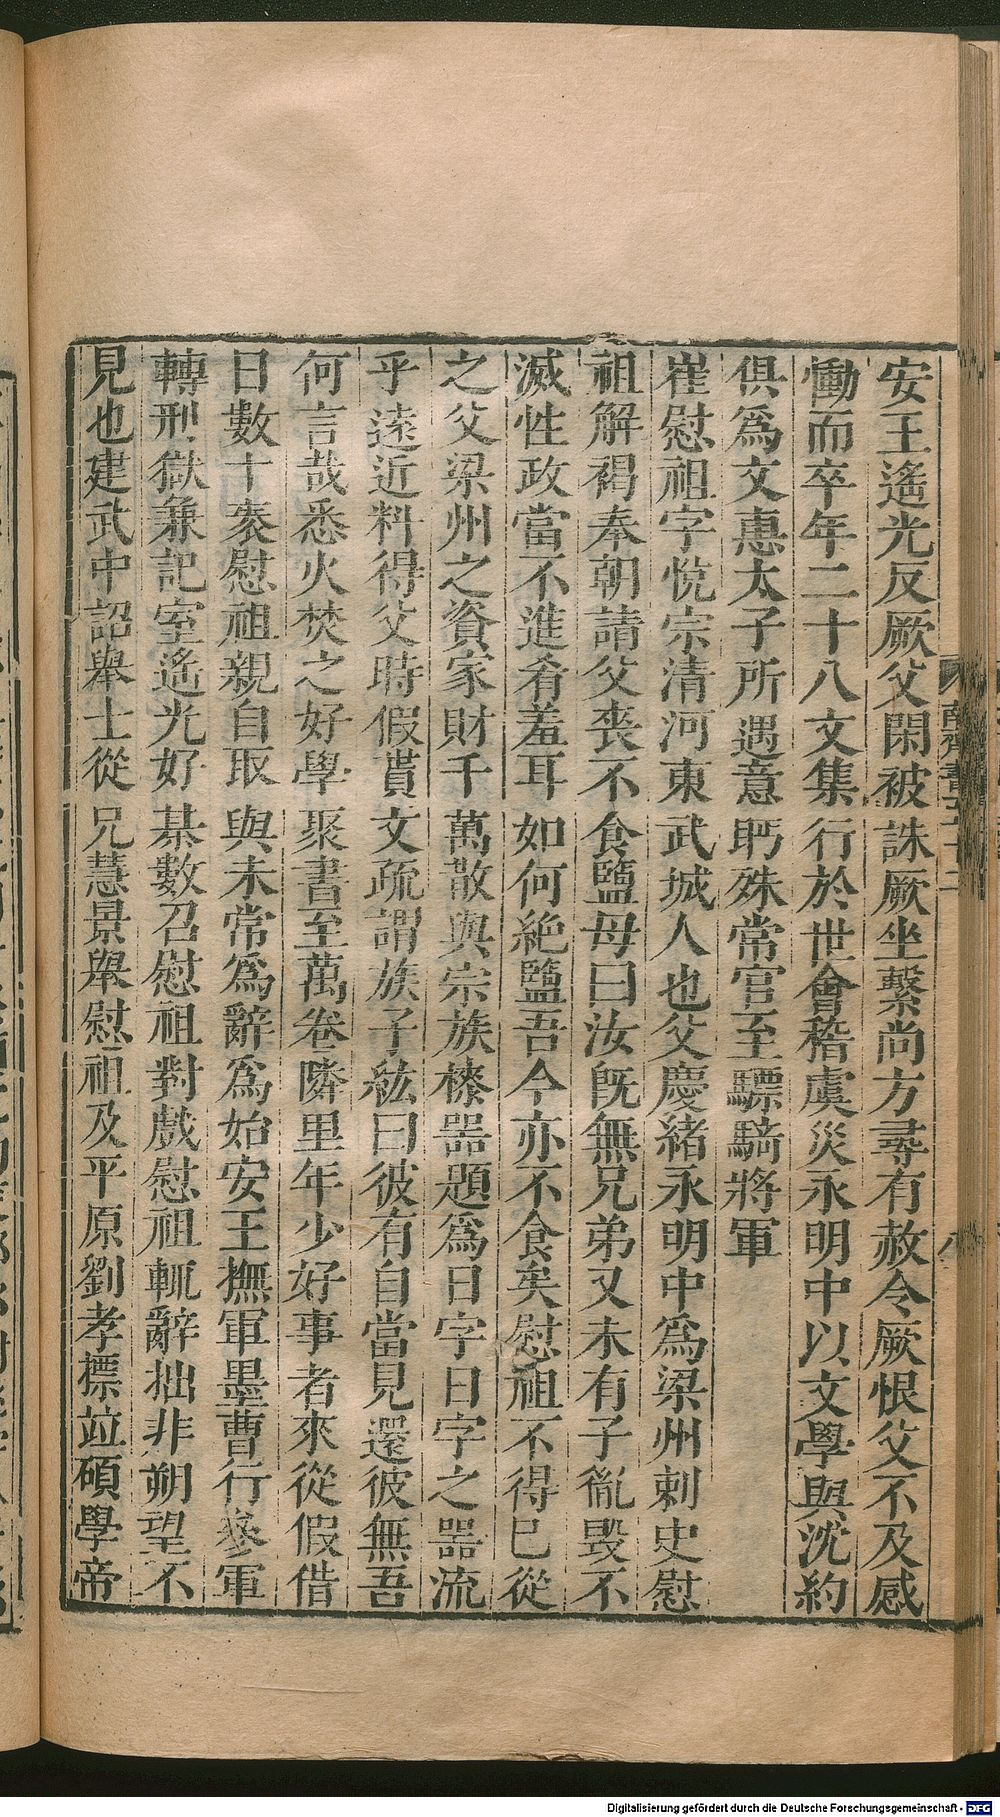 安王遙光反厥父閑被誅厥坐繫尚方尋有赦令厥恨父不及感
慟而卒年二十八文集行於世會稽虞炎永明中以文學與沈約
俱爲文惠太子所遇意眄殊常官至驃騎將軍
崔慰祖字悅宗清河東武城人也父慶緒永明中爲梁州刺史慰
祖解褐奉朝請父喪不食鹽母曰汝旣無兄弟又未有子胤毀不
滅性政當不進肴羞耳如何絶鹽吾今亦不食矣慰祖不得已從
之父梁州之資家財千萬散與宗族漆器題爲日字日字之器流
乎遠近料得父時假貰文疏謂族子紘曰彼有自當見還彼無吾
何言哉悉火焚之好學聚書至萬卷隣里年少好事者來從假借
日數十袠慰祖親自取與未常爲辭爲始安王撫軍墨曹行參軍
轉刑獄兼記室遙光好棊數召慰祖對戲慰祖輒辭拙非朔望不
見也建武中詔舉士從兄慧景舉慰祖及平原劉孝標並碩學帝
南齊書五十二
八
Digitalisierung gefördert durch die Deutsche Forschungsgemeinschaft - DFG